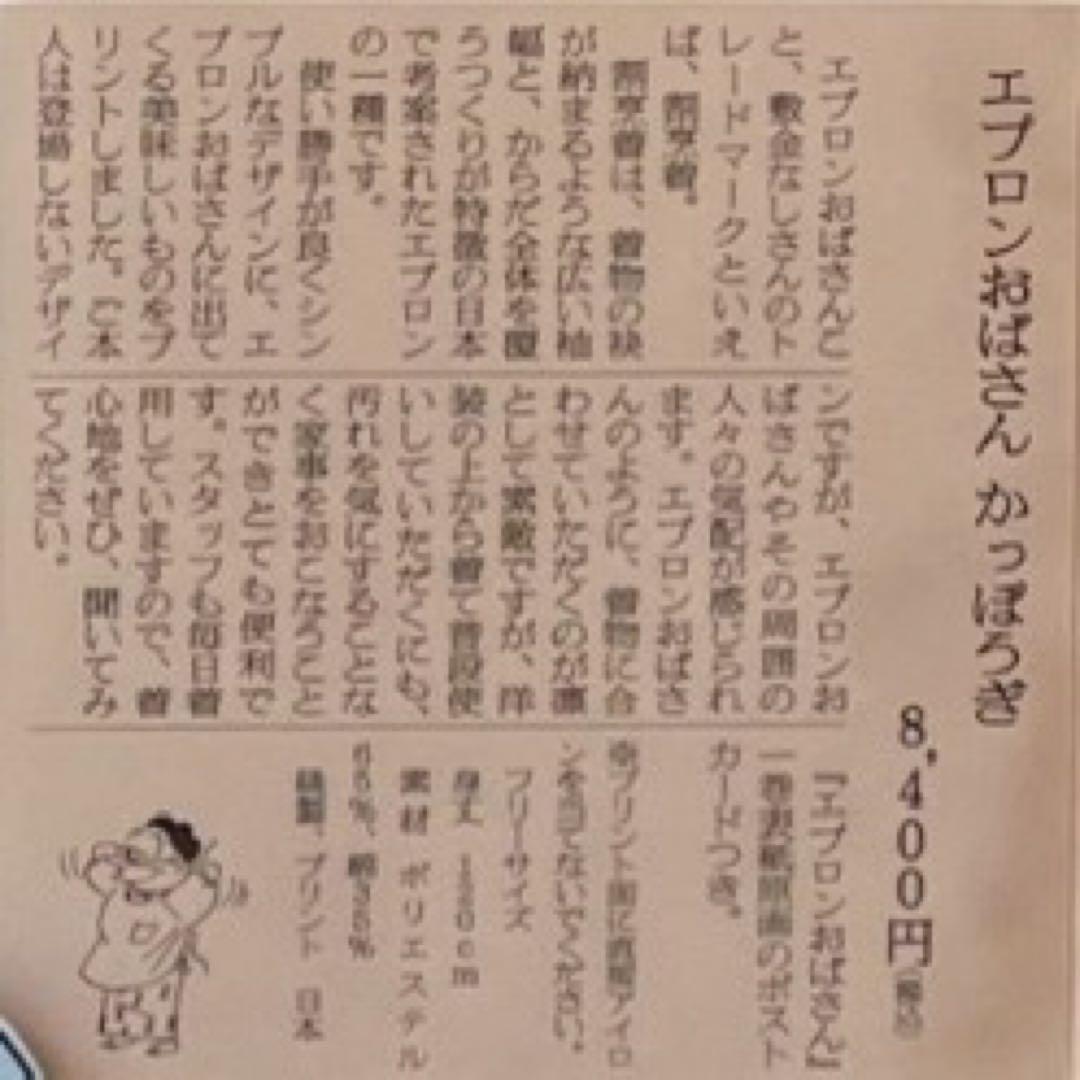 エプロンおばさん かっぽうぎ
8,400円(税込)
エプロンおばさんと
と、敷金なしさんのト
レードマークといえ
ば、割烹着。
割烹着は、着物の袂
が納まるような広い袖
幅と、からだ全体を覆
うつくりが特徴の日本
で考案されたエプロン
の一種です。
使い勝手が良くシン
プルなデザインに、エ
プロンおばさんに出て
くる美味しいものをプ
リントしました。ご本
人は登場しないデザイ
ンですが、エプロンお
ばさんやその周囲の
人々の気配が感じられ
ます。エプロンおばさ
んのように、着物に合
わせていただくのが凛
として素敵ですが、洋
装の上から着て普段使
いしていただくにも、
汚れを気にすることな
く家事をおこなうこと
ができとても便利で
す。スタッフも毎日着
用していますので、着
心地をぜひ、聞いてみ
てください。
『エプロンおばさん』
一巻表紙原画のポスト
カードつき。
※プリント面に直接アイロ
ンを当てないでください。
フリーサイズ
身丈 120cm
素材 ポリエステル
65%、綿35%
縫製、プリント 日本